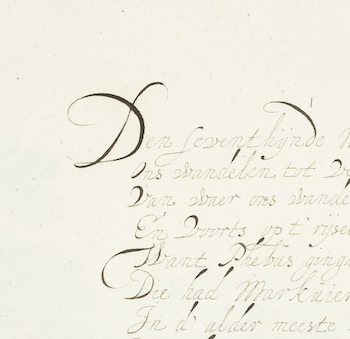 Den seventhijnde
Ons wandelen tot
Van waer ons wande
En voorts op t' rijse
Want Phebus ging
Die had Markuier
In d' alder meeste